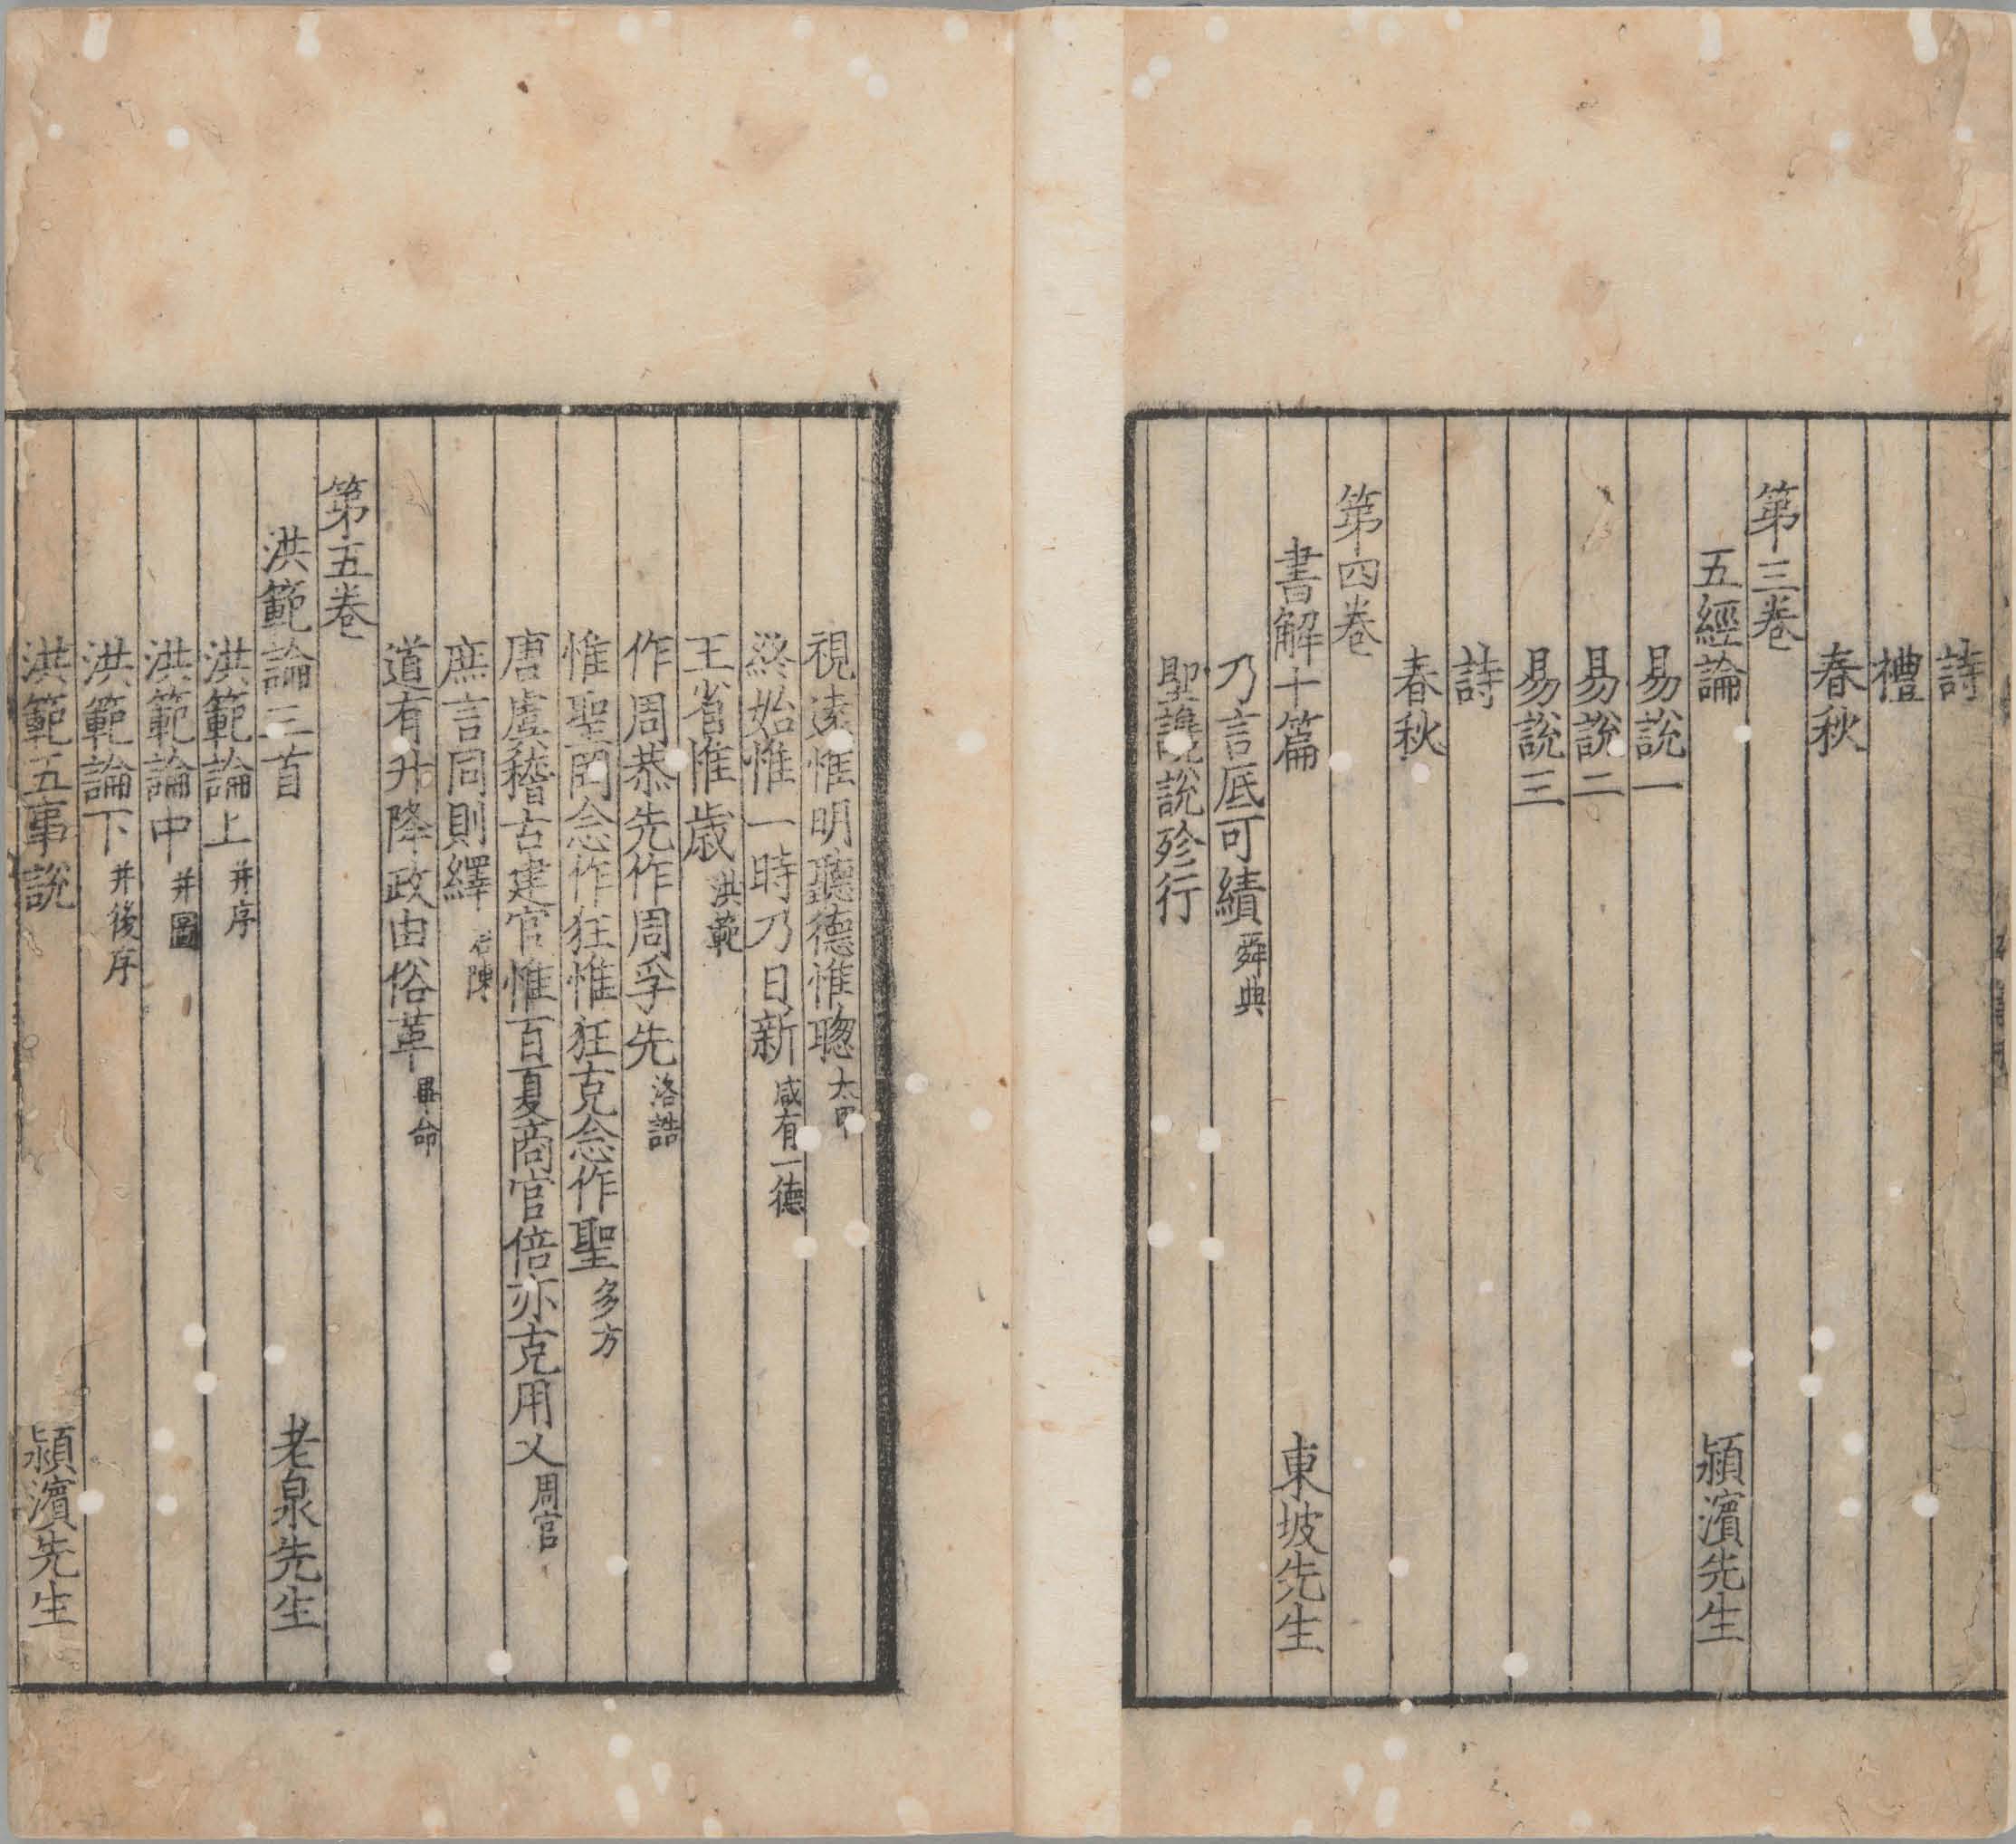 詩
禮
春秋
第三卷
五經論 潁濵先生
易說一
易說二
易說三
詩
春秋
第四卷
書解十篇 東坡先生
乃言底可績 舜典
聖讒說殄行
視遠惟明聽德惟聦 太甲
終始惟一時乃日新 咸有一德
王省惟歲 洪範
作周恭先作周孚先 洛誥
惟聖罔念作狂惟狂克念作聖 多方
唐虞稽古建官惟百夏商官倍亦克用乂 周官
庶言同則繹 君陳
道有升降政由俗革 畢命
第五卷
洪範論三首 老泉先生
洪範論上 并序
洪範論中 并圖
洪範論下 并後序
洪範五事說 潁濵先生